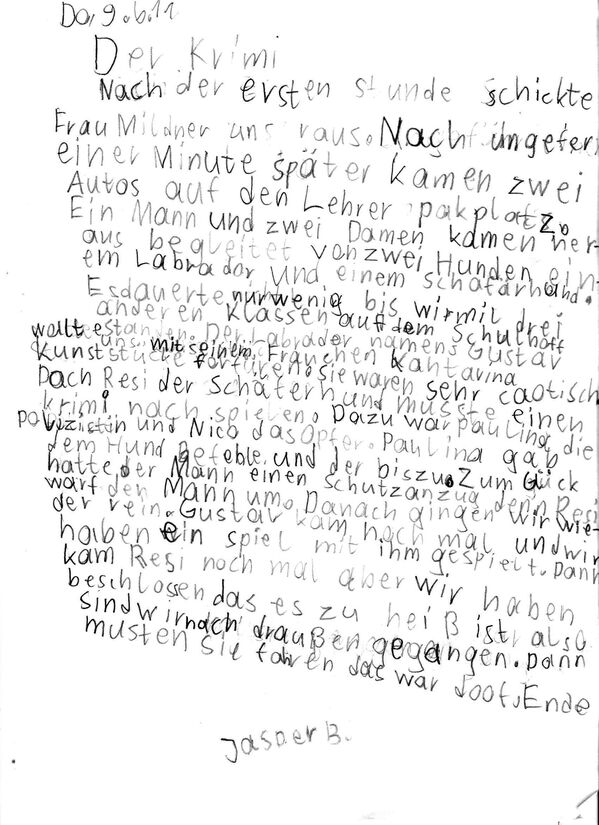 Do, 9.6.11
Der Krimi
Nach der ersten stunde schickte
Frau Mildner uns raus. Nach ungefer
einer Minute später kamen zwei
Autos auf den Lehrer pakplatz.
Ein Mann und zwei Damen kamen her-
aus begleitet von zwei Hunden ein-
em Labrador und einem schäfärhund.
Es dauerte nur wenig bis wir mit drei
anderen Klassen auf dem Schulhoff
standen. Der Labrador namens Gustav
wollte uns mit seinem Frauchen Kantarina
Kunststücke forfüren. Sie waren sehr caotisch
Doch Resi der Schäferhund musste einen
krimi nach spielen. Dazu war paulina die
polizistin und Nico das Opfer. Paulina gab
dem Hund Befeble und der biszu. Zum Glück
hatte der Mann einen Schutzanzug denn Resi
warf den Mann um. Danach gingen wir wie-
der rein. Gustav kam noch mal und wir
haben ein spiel mit ihm gespielt. Dann
kam Resi noch mal aber wir haben
beschlossen das es zu heiß ist also
sind wir nach draußen gegangen. Dann
musten sie fahren das war doof. Ende
Jasper B.